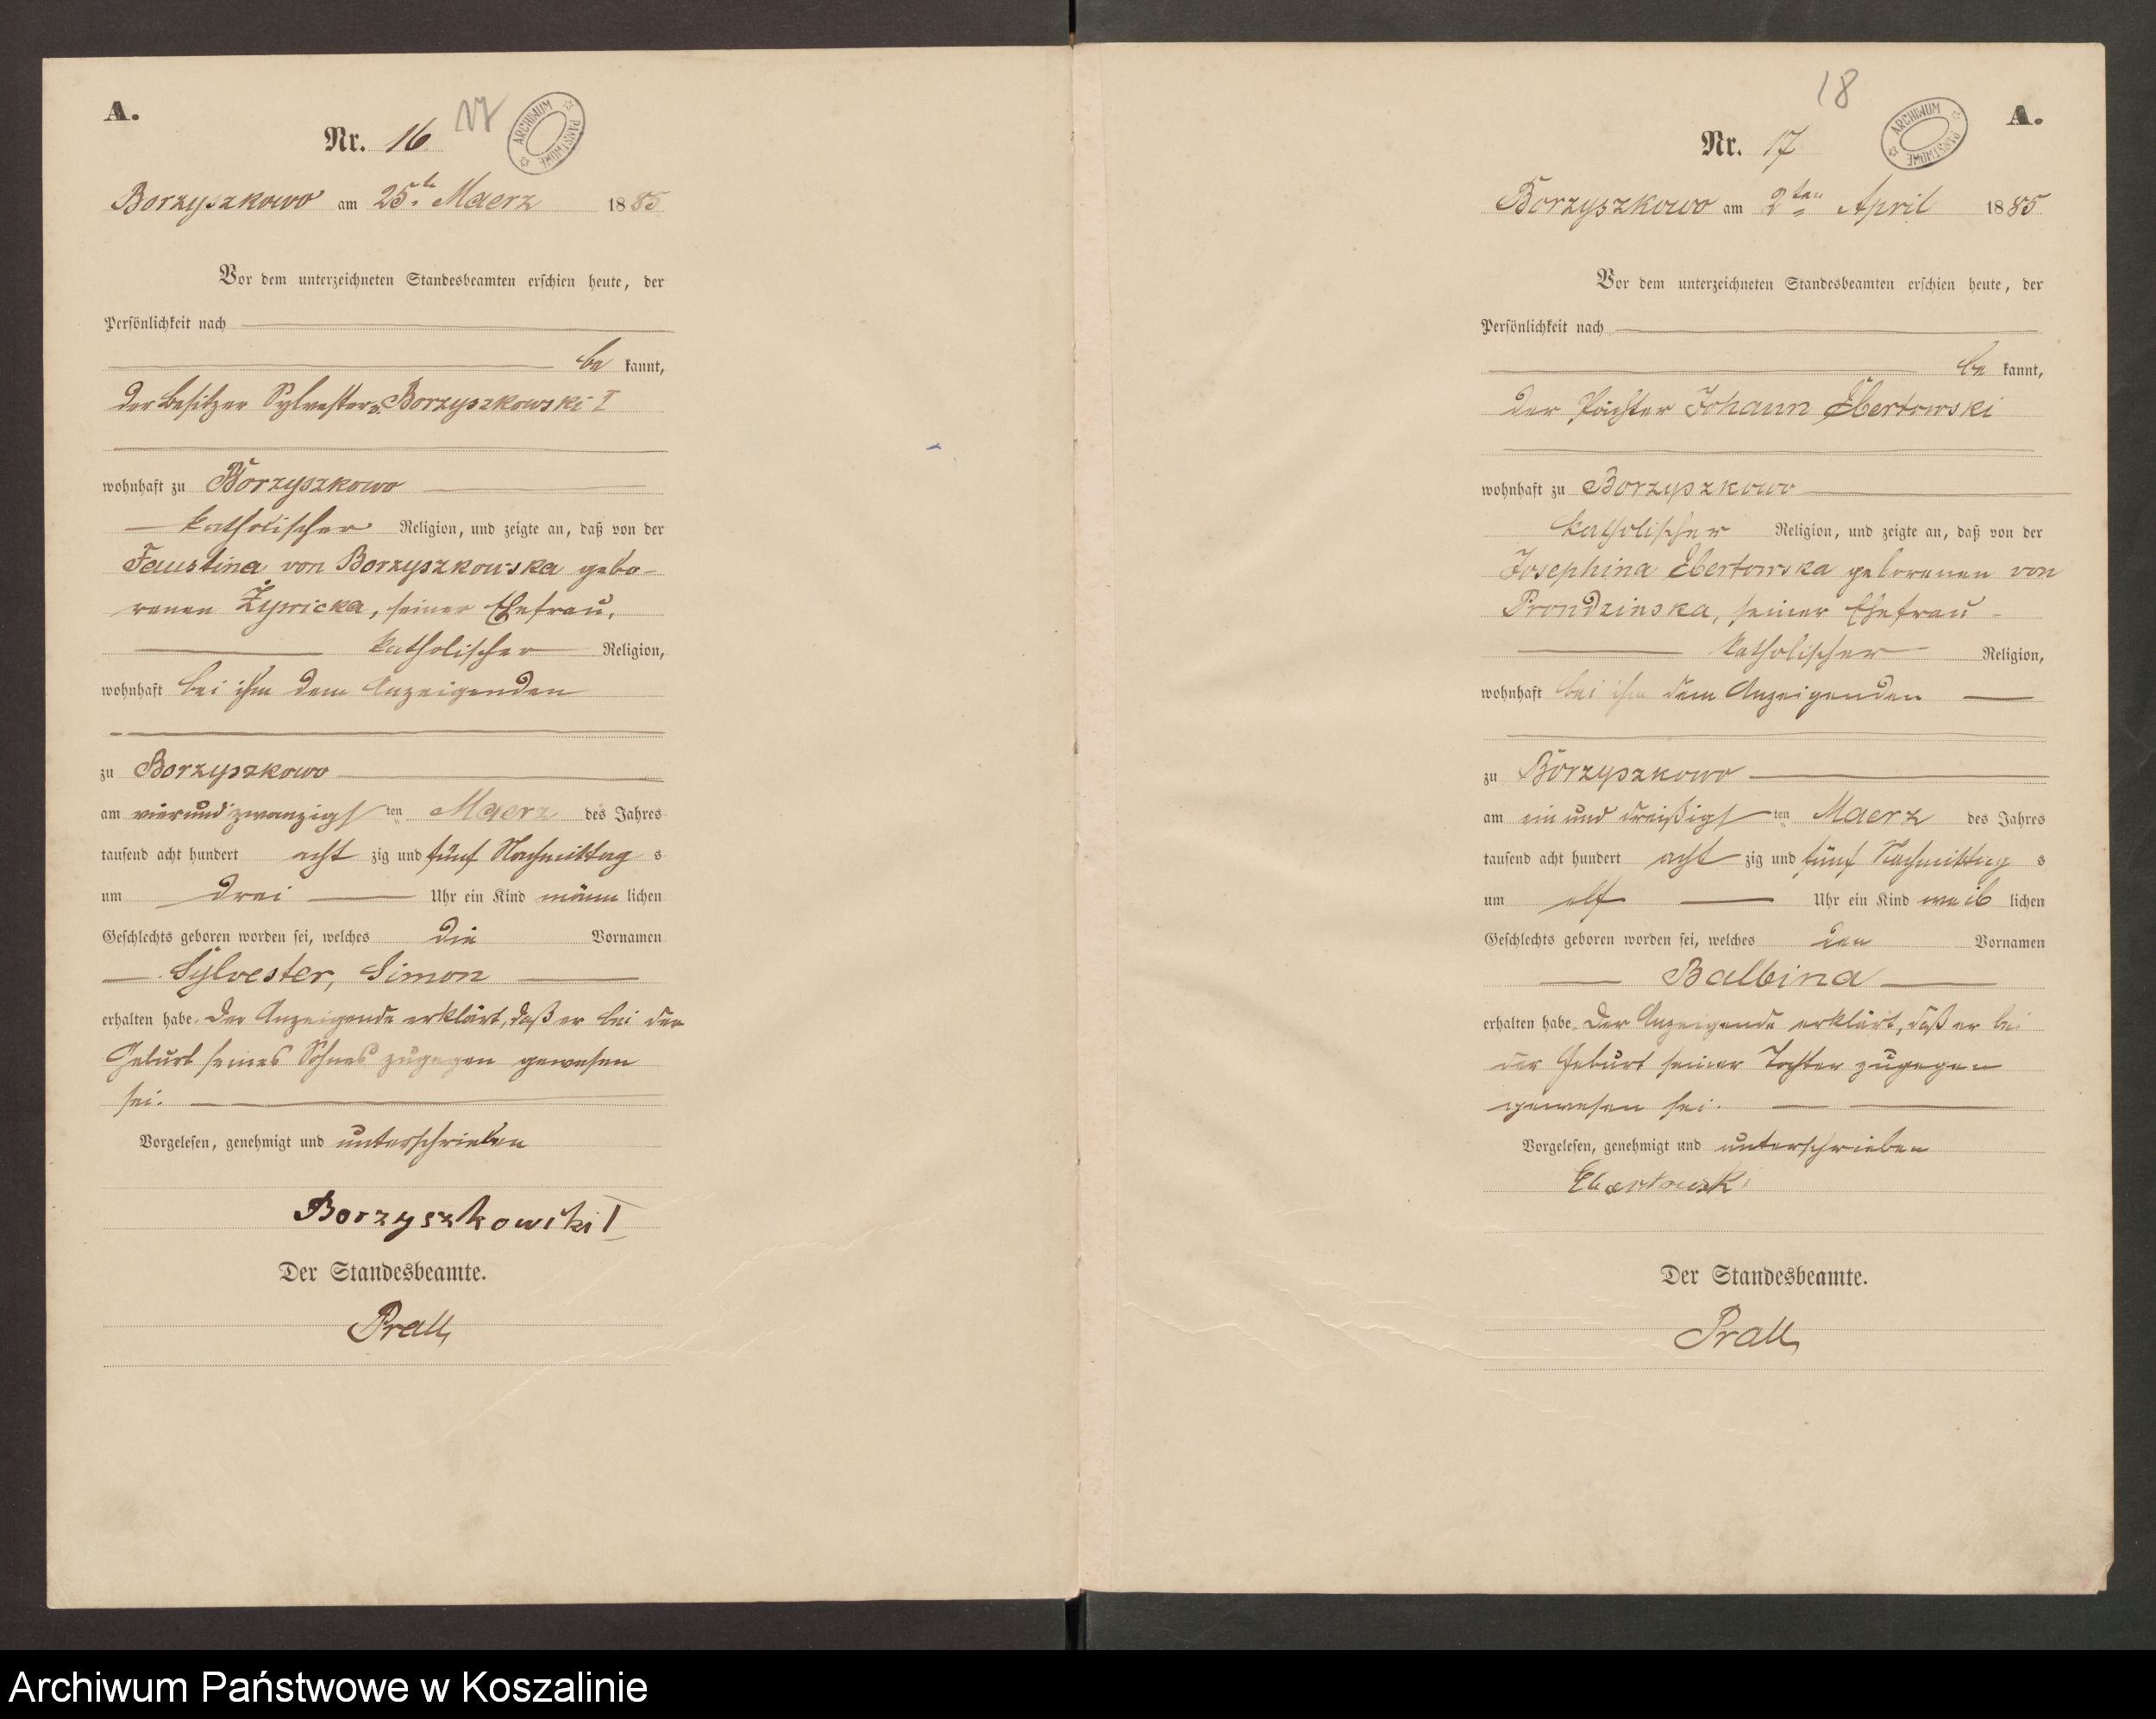 A.
Nr. 16
17
ARCHIWUM PAŃSTWOWE
Borzyszkowo am 25t. Maerz 1885
Vor dem unterzeichneten Standesbeamten erschien heute, der
Persönlichkeit nach
be kannt,
der Besitzer Sylvester v. Borzyszkowski I
wohnhaft zu Borzyszkowo
katholischer Religion, und zeigte an, daß von der
Faustina von Borzyszkowska gebo-
renen Żywicka, seiner Ehefrau,
katholischer Religion,
wohnhaft bei ihm dem Anzeigenden
zu Borzyszkowo
am vierundzwanzigs ten Maerz des Jahres
tausend acht hundert acht zig und fünf Nachmittag s
um drei Uhr ein Kind männ lichen
Geschlechts geboren worden sei, welches die Vornamen
Sylvester, Simon
erhalten habe. Der Anzeigende erklärt, daß er bei der
Geburt seines Sohnes zugegen gewesen
sei.
Vorgelesen, genehmigt und unterschrieben
Borzyszkowski I
Der Standesbeamte.
Prall
18
A.
Nr. 17
ARCHIWUM PAŃSTWOWE
Borzyszkowo am 2ten April 1885
Vor dem unterzeichneten Standesbeamten erschien heute, der
Persönlichkeit nach
be kannt,
der Pächter Johann Ebertowski
wohnhaft zu Borzyszkowo
katholischer Religion, und zeigte an, daß von der
Josephina Ebertowska geborenen von
Prondzinska, seiner Ehefrau
katholischer Religion,
wohnhaft bei ihm dem Anzeigenden
zu Borzyszkowo
am ein und dreißigs ten Maerz des Jahres
tausend acht hundert acht zig und fünf Nachmittag s
um elf Uhr ein Kind weib lichen
Geschlechts geboren worden sei, welches den Vornamen
Balbina
erhalten habe. Der Anzeigende erklärt, daß er bei
der Geburt seiner Tochter zugegen
gewesen sei.
Vorgelesen, genehmigt und unterschrieben
Ebertowski
Der Standesbeamte.
Prall
Archiwum Państwowe w Koszalinie